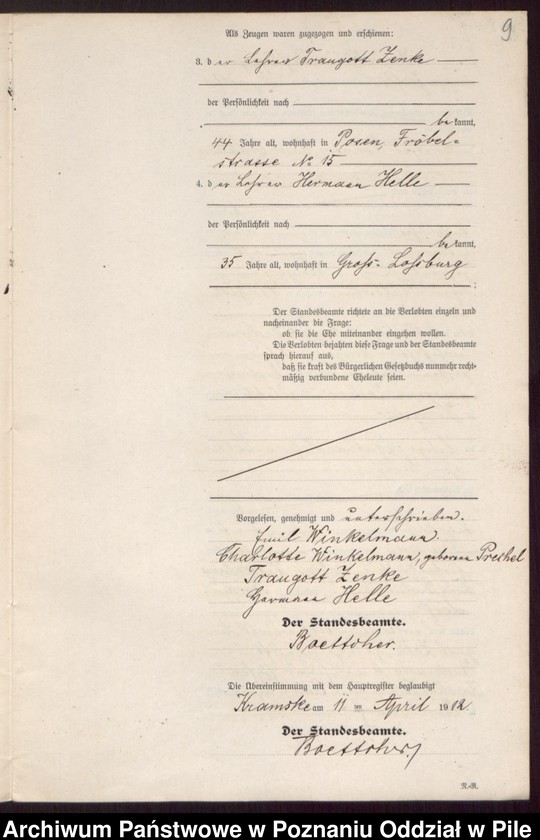 9
Als Zeugen waren zugezogen und erschienen:
3. der Lehrer Traugott Zenke
der Persönlichkeit nach
bekannt,
44 Jahre alt, wohnhaft in Posen, Fröbel-
strasse No 15
4. der Lehrer Hermann Helle
der Persönlichkeit nach
bekannt,
35 Jahre alt, wohnhaft in Groß-Loßburg
;
Der Standesbeamte richtete an die Verlobten einzeln und
nacheinander die Frage:
ob sie die Ehe miteinander eingehen wollen.
Die Verlobten bejahten diese Frage und der Standesbeamte
sprach hierauf aus,
daß sie kraft des Bürgerlichen Gesetzbuchs nunmehr recht-
mäßig verbundene Eheleute seien.
Vorgelesen, genehmigt und unterschrieben.
Emil Winkelmann.
Charlotte Winkelmann, geborene Prechel
Traugott Zenke
Hermann Helle
Der Standesbeamte.
Boettcher.
Die Übereinstimmung mit dem Hauptregister beglaubigt
Kramske am 11 ten April 1912
Der Standesbeamte.
Boettcher
R.-R.
Archiwum Państwowe w Poznaniu Oddział w Pile